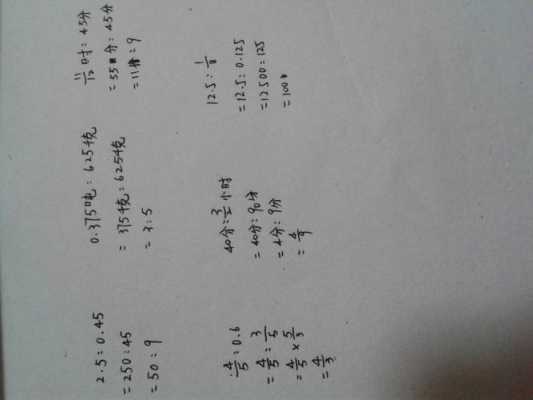 2.5:0.45
=250:45
=50:9
0.375吨:625千克
=375千克:625千克
=3:5
11/12时:45分
=55分:45分
=11:9
4/5:0.6
=4/5:3/5
=4/5×5/3
=4/3
40分:3/2小时
=40分:90分
=4分:9分
=4/9
12.5:1/8
=12.5:0.125
=12500:125
=100